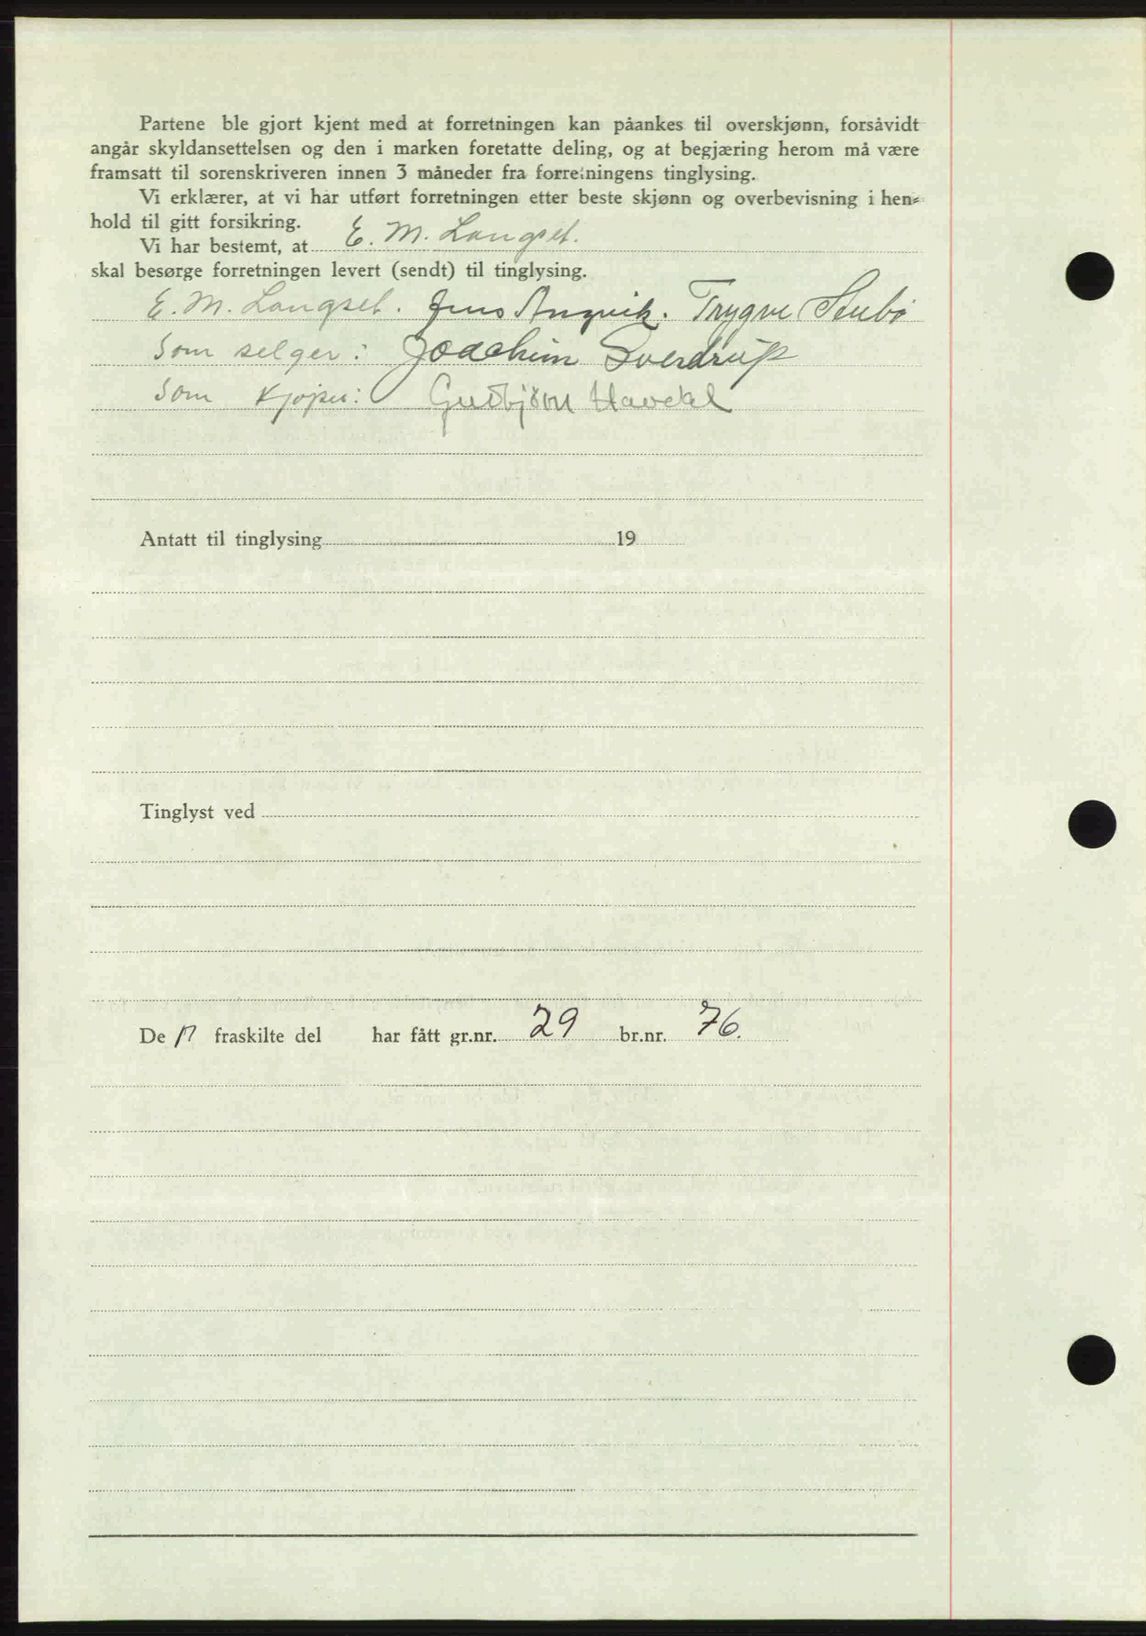 Partene ble gjort kjent med at forretningen kan påankes til overskjønn, forsåvidt
angår skyldansettelsen og den i marken foretatte deling, og at begjæring herom må være
framsatt til sorenskriveren innen 3 måneder fra forretningens tinglysing.
Vi erklærer, at vi har utført forretningen etter beste skjønn og overbevisning i hen-
hold til gitt forsikring.
Vi har bestemt, at E. M. Langset.
skal besørge forretningen levert (sendt) til tinglysing.
E. M. Langset. Jens Angvik. Trygve Stubø
Som selger: Joachim Sverdrup
Som kjøper: Gudbjörn
Antatt til tinglysing 19
Tinglyst ved
De n fraskilte del har fått gr.nr. 29 br.nr. 76.